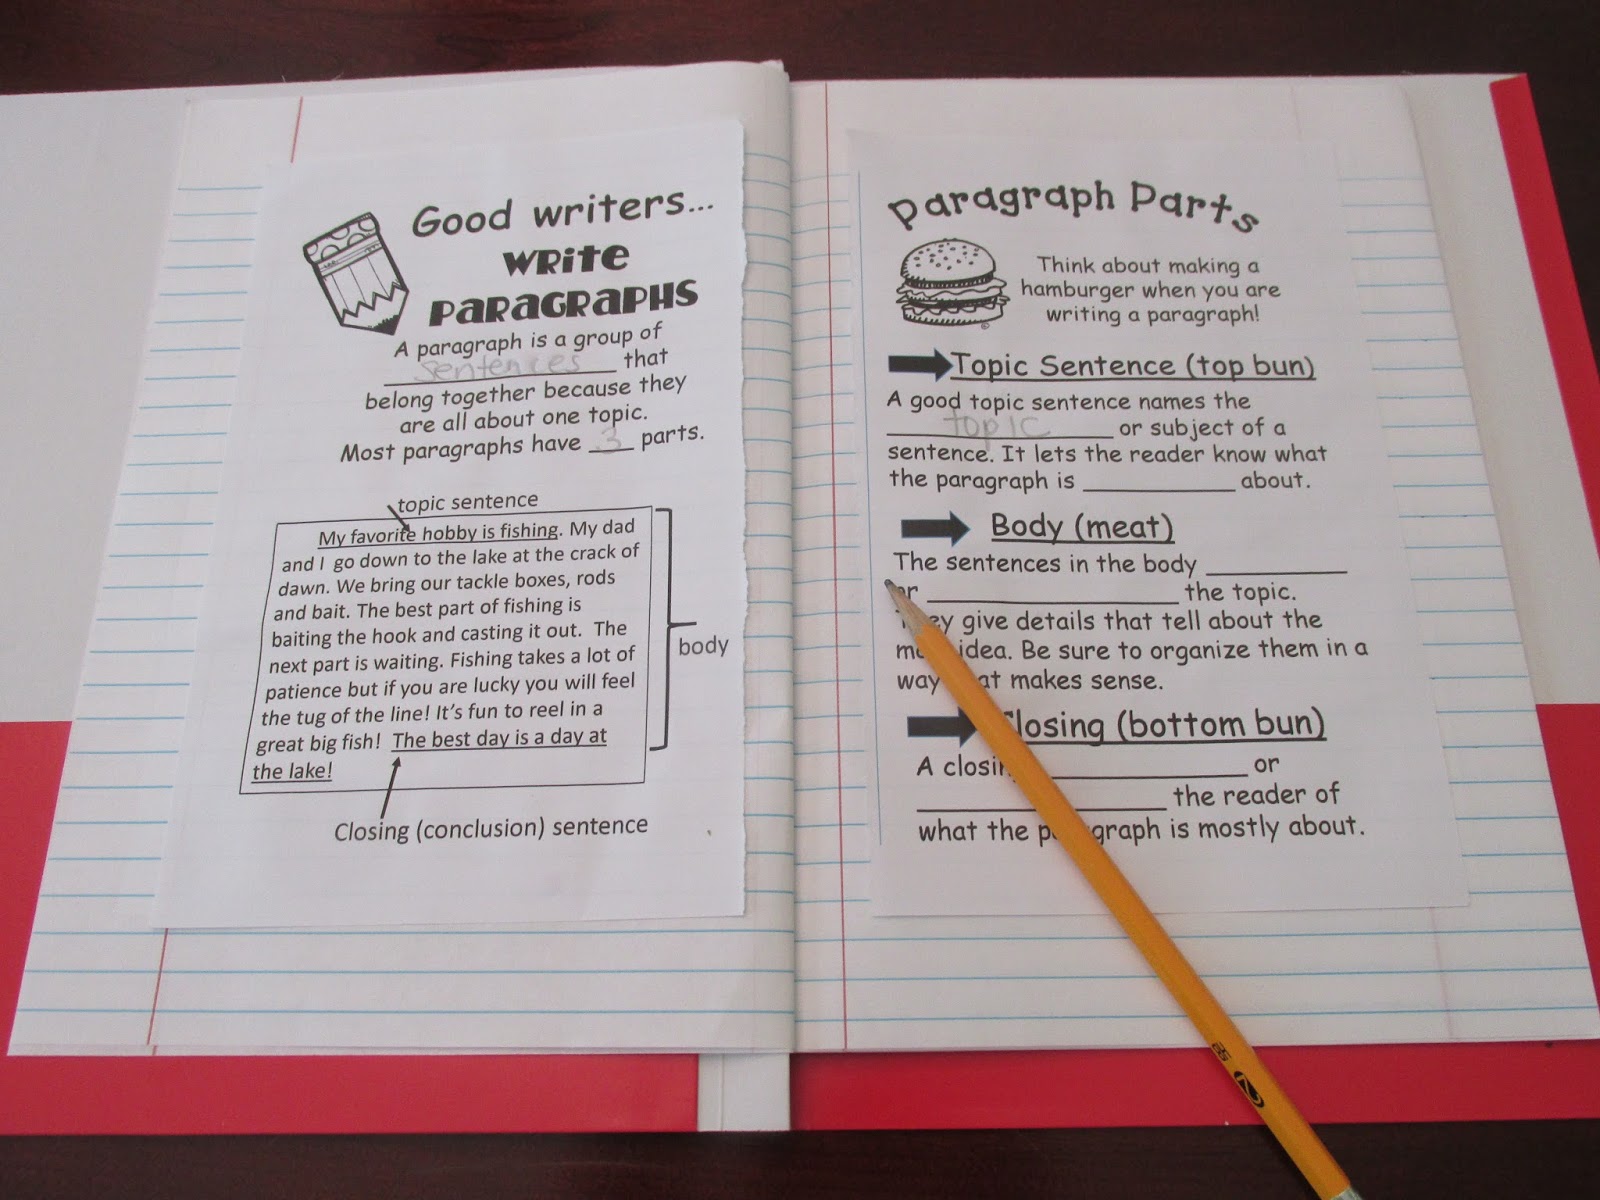 Good writers...
WRITE
PARAGRAPHS
A paragraph is a group of
sentences that
belong together because they
are all about one topic.
Most paragraphs have 3 parts.
topic sentence
My favorite hobby is fishing. My dad
and I go down to the lake at the crack of
dawn. We bring our tackle boxes, rods
and bait. The best part of fishing is
baiting the hook and casting it out. The
next part is waiting. Fishing takes a lot of
patience but if you are lucky you will feel
the tug of the line! It's fun to reel in a
great big fish! The best day is a day at
the lake!
body
Closing (conclusion) sentence
Paragraph Parts
Think about making a
hamburger when you are
writing a paragraph!
Topic Sentence (top bun)
A good topic sentence names the
topic or subject of a
sentence. It lets the reader know what
the paragraph is ____________ about.
Body (meat)
The sentences in the body ____________
or ____________ the topic.
They give details that tell about the
idea. Be sure to organize them in a
way that makes sense.
Closing (bottom bun)
A closing ____________ or
____________ the reader of
what the paragraph is mostly about.